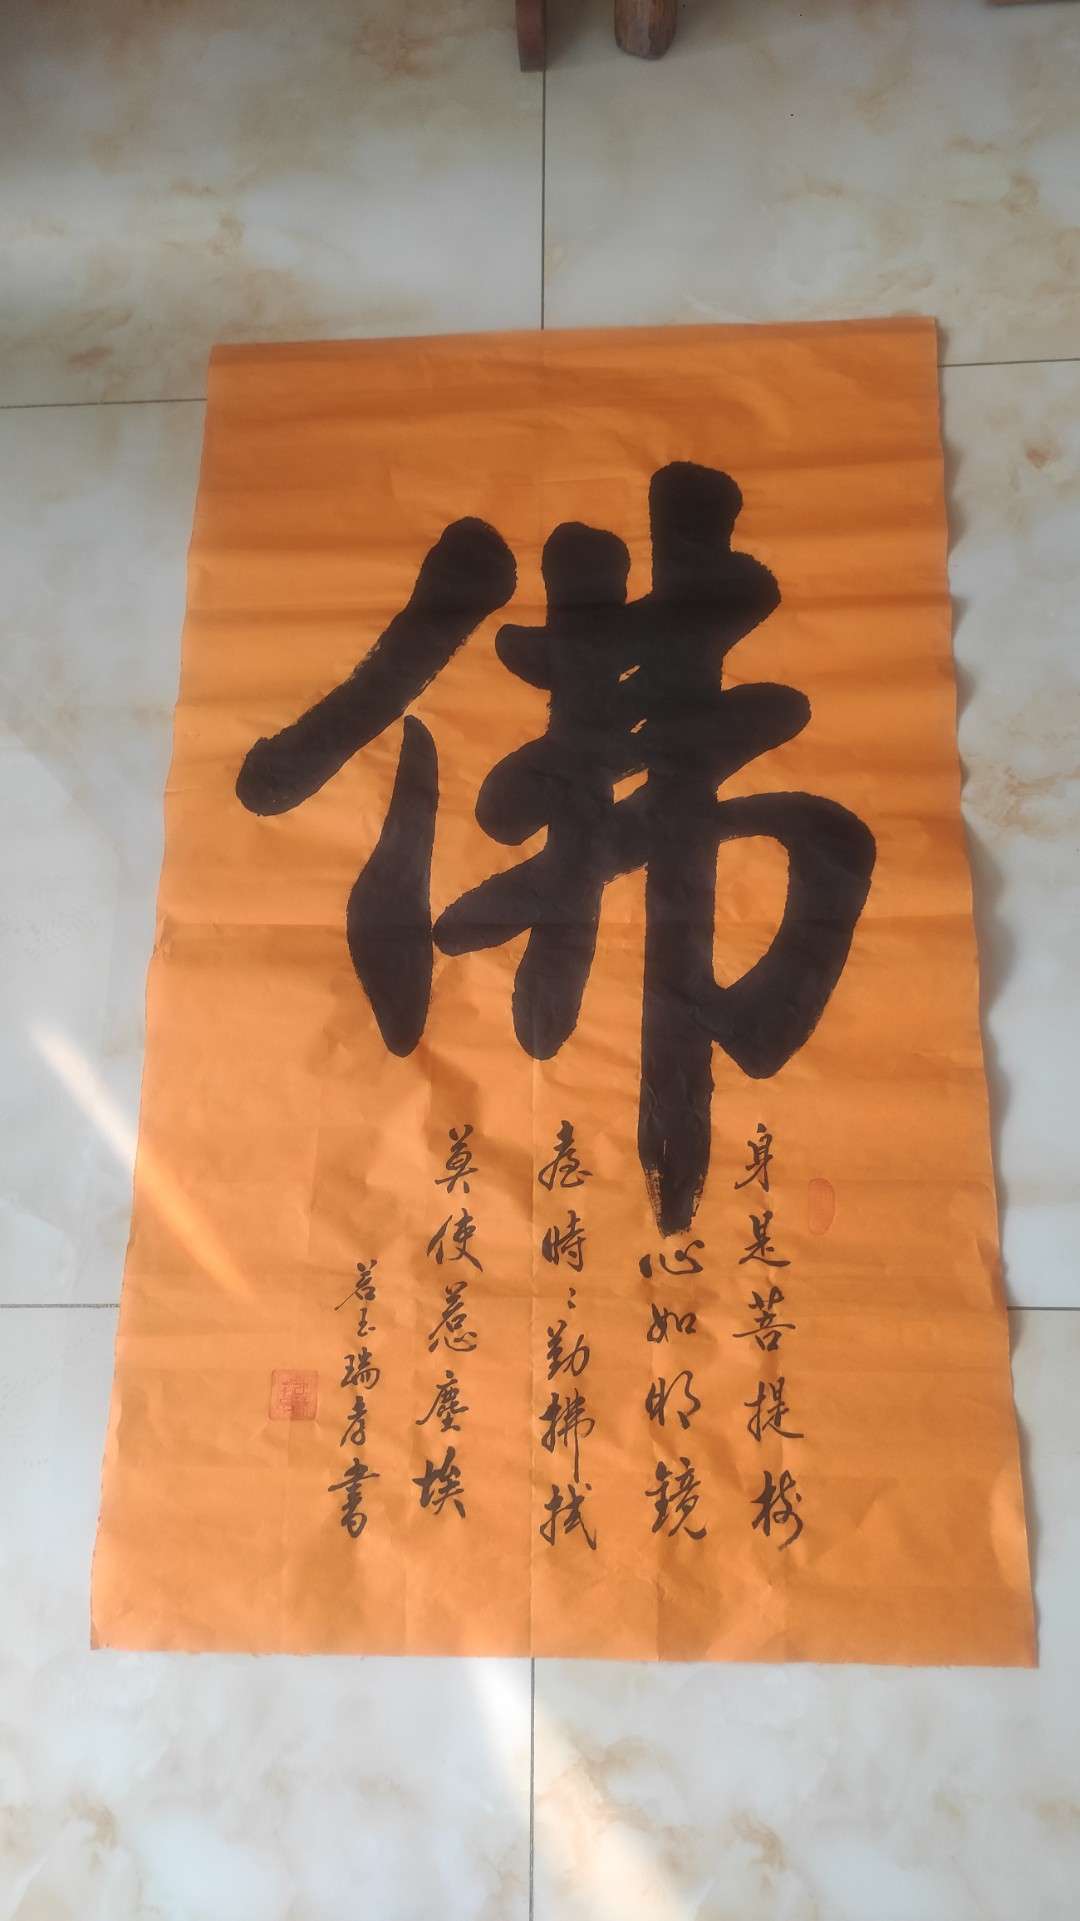 佛
身是菩提樹
心如明鏡
臺時〻勤拂拭
莫使惹塵埃
若玉瑞孝書